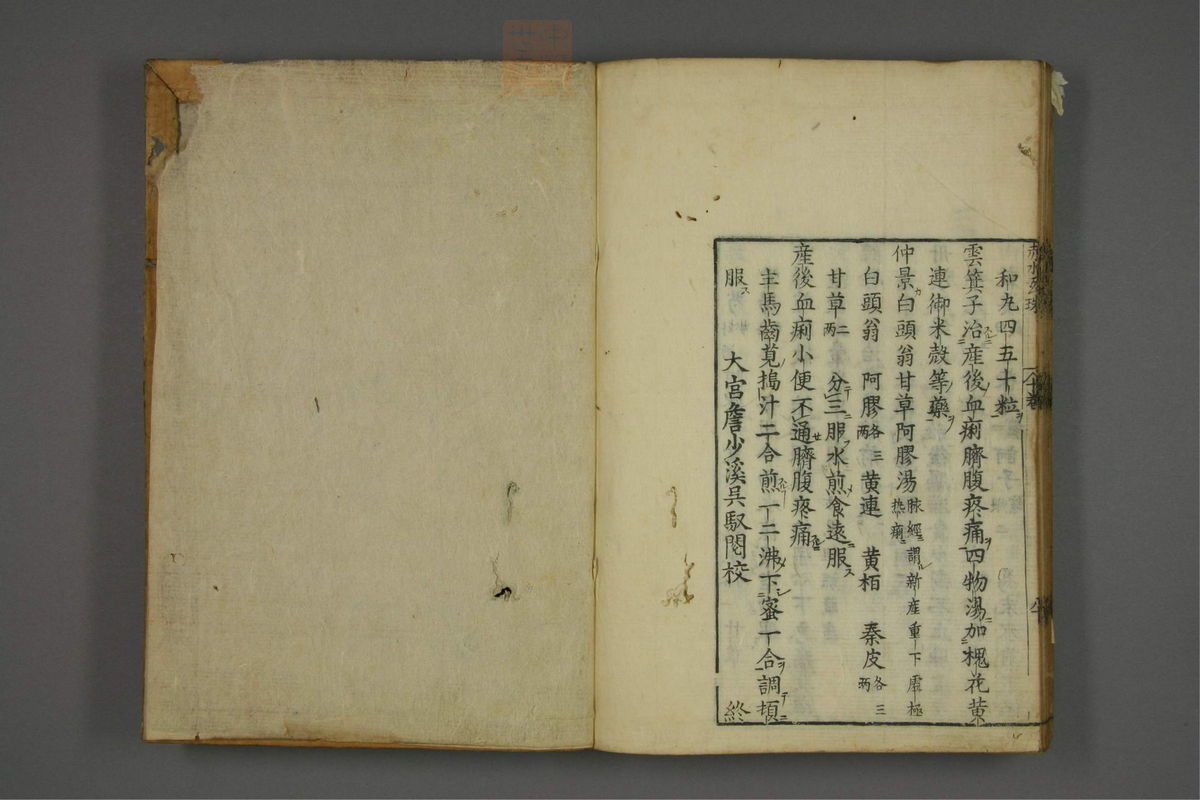 和丸四五十粒ヲ
雲箕子治産後血痢臍腹疼痛四物湯加槐花黄
連御米殻等藥
仲景白頭翁甘草阿膠湯脉經謂新産重下虚極
熱痢
白頭翁 阿膠各三兩 黄連 黄栢 秦皮各三兩
甘草二兩 分三服水煎食遠服
産後血痢小便不通臍腹疼痛
生馬齒莧搗汁二合煎一二沸下蜜一合調頓
服
大宮詹少溪吳馭閲校 終